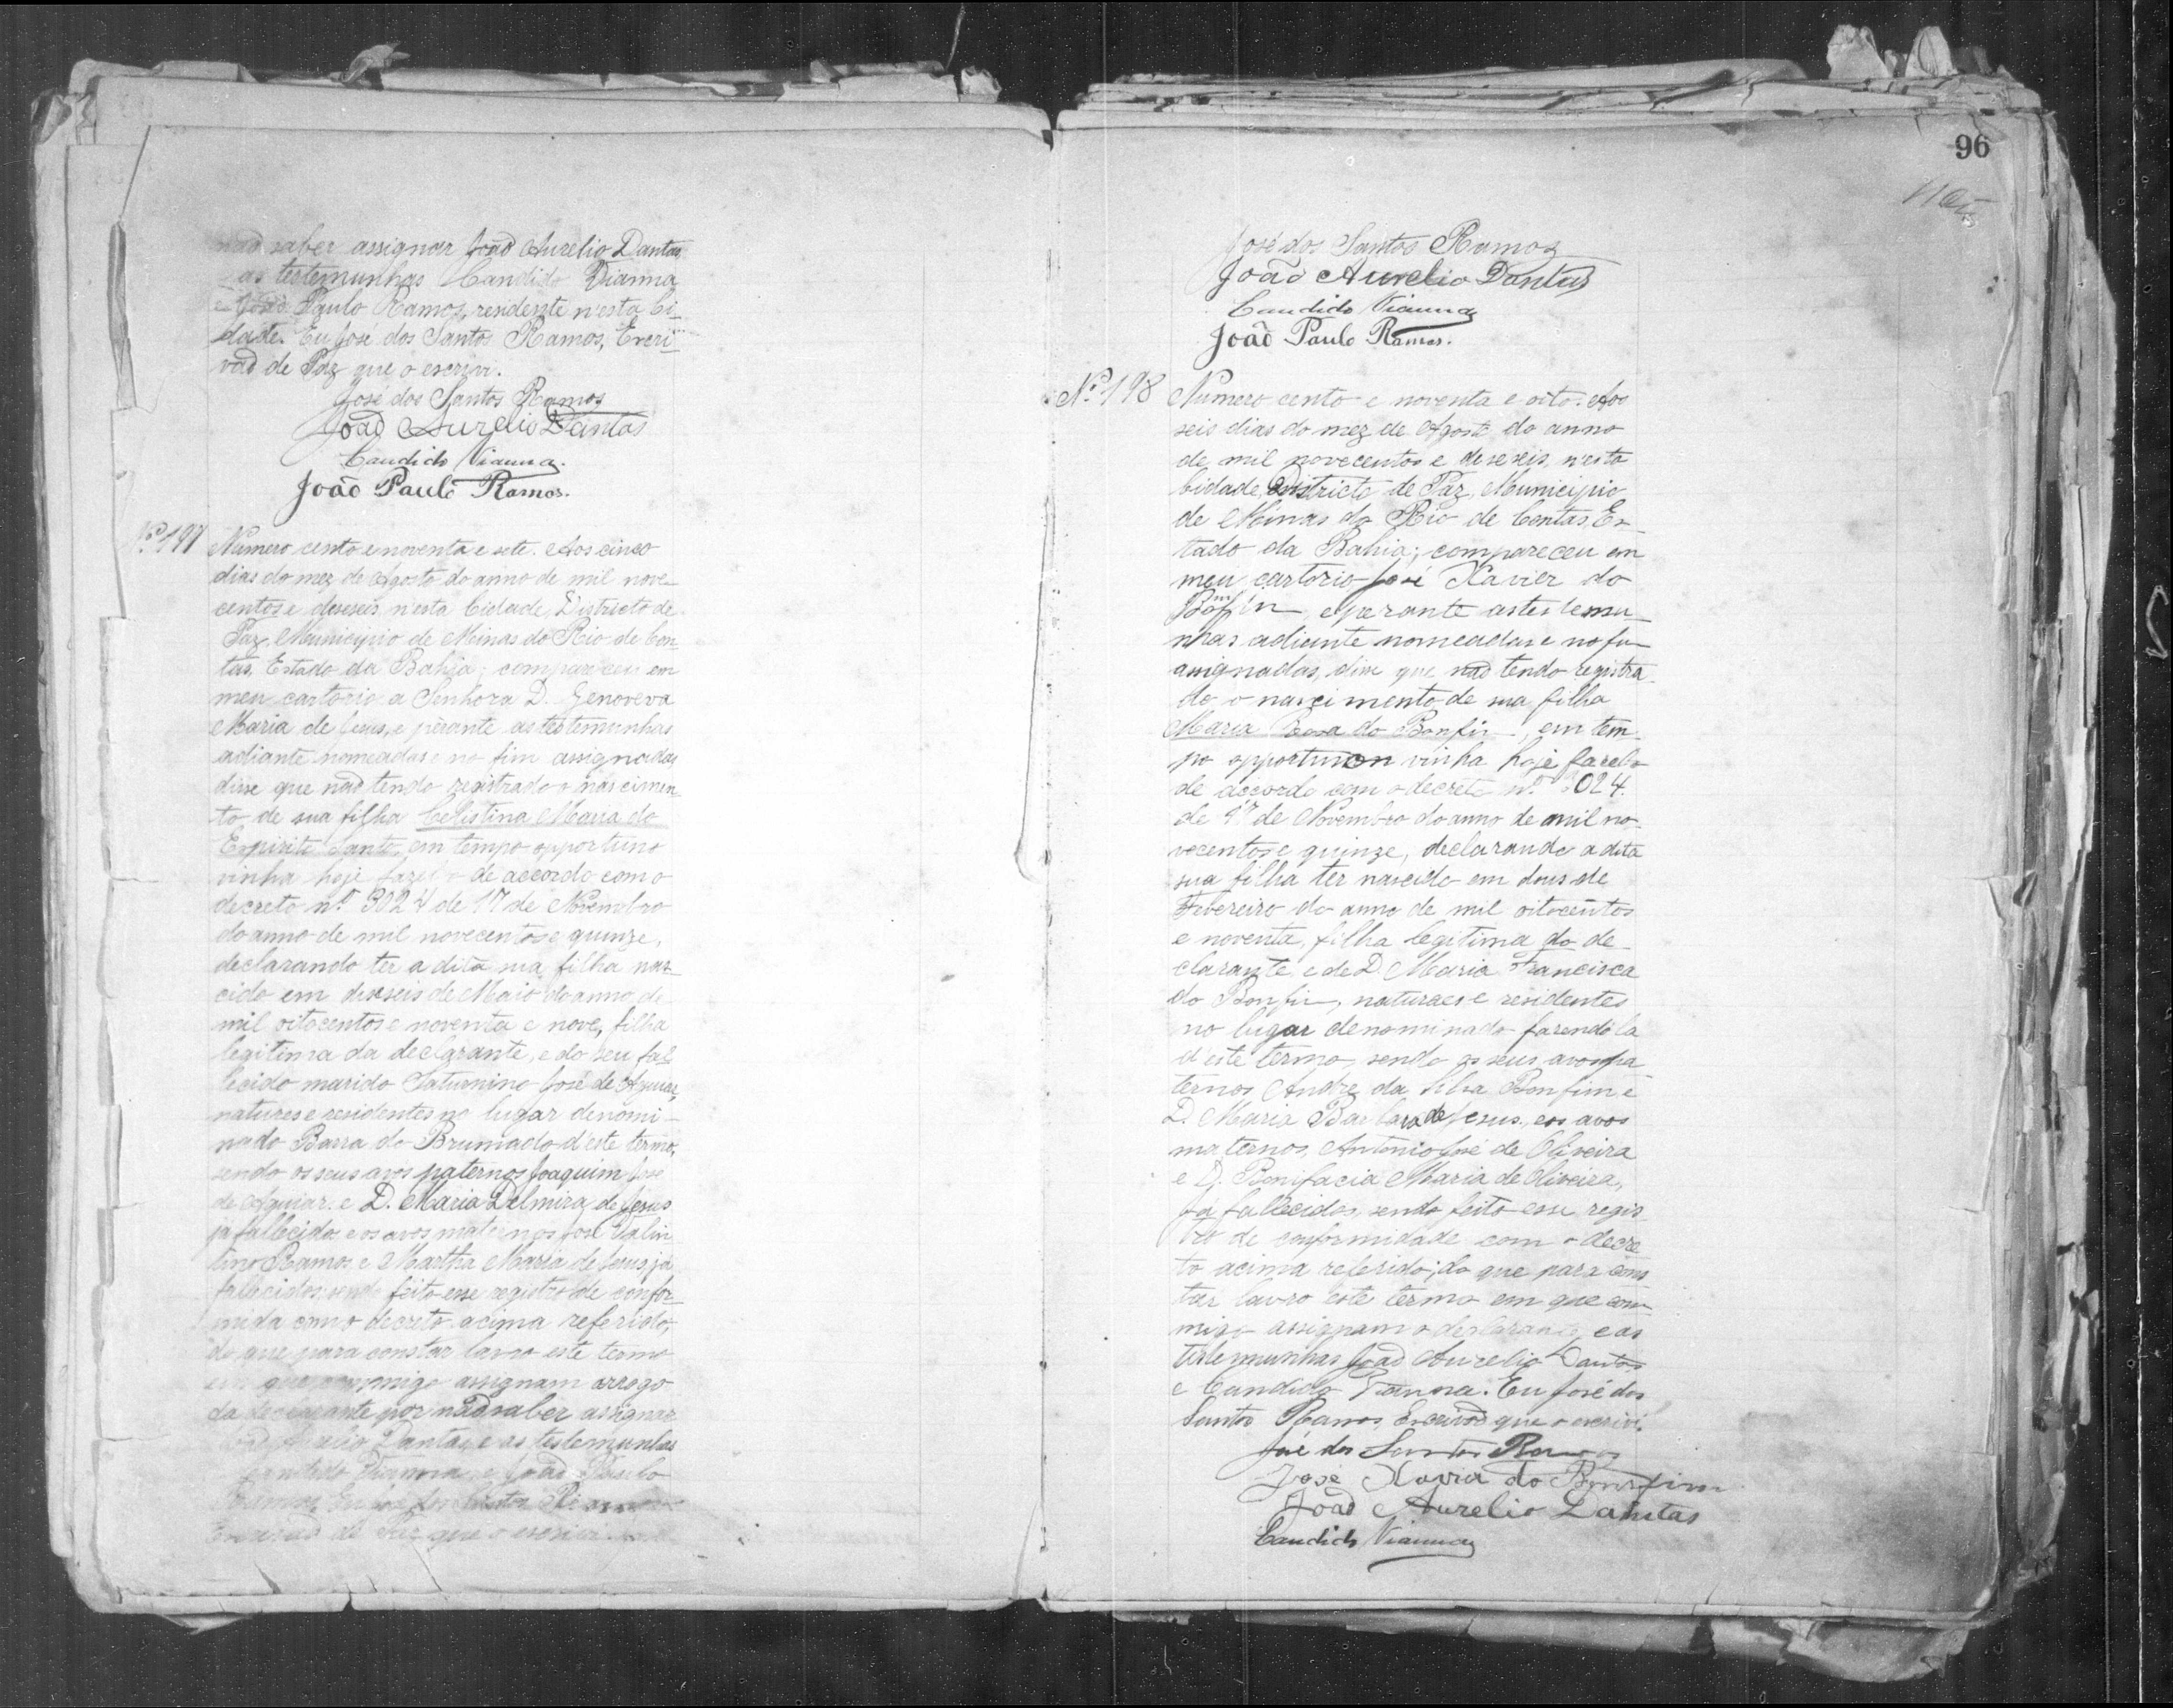 não saber assignar João Aurelio Dantas
as testemunhas Candido Vianna
e João Paulo Ramos, rendente n'esta Ci-
dade. Eu José dos Santos Ramos, Escri-
vão de Paz que o escrivi.
José dos Santos Ramos
João Aurelio Dantas
Candido Vianna.
João Paulo Ramos.
Nº 197
Numero cento e noventa e sete. Aos cinco
dias do mez de Agosto do anno de mil nove-
centos e deseseis, n'esta Cidade, Districto de
Paz, Municipio de Minas do Rio de Con-
tas, Estado da Bahia; compareceu em
meu cartorio a Senhora D. Genoveva
Maria de Jesus, e perante as testemunhas
adiante nomeadas e no fim assignadas
disse que não tendo registrado o nascimen-
to de sua filha Celistina Maria do
Espirito Santo, em tempo opportuno
vinha hoje fazel-o de accordo com o
decreto nº 3024 de 17 de Novembro
do anno de mil novecentos e quinze,
declarando ter a dita sua filha nas-
cido em deseseis de Maio do anno de
mil oitocentos e noventa e nove, filha
legitima da declarante, e do seu fal-
lecido marido Saturnino José de Aguiar,
natures e residentes no lugar denomi-
nado Barra do Brumado d'este termo,
sendo os seus avos paternos Joaquim José
de Aguiar e D. Maria Delmira de Jesus
ja fallecidos, e os avos maternos José Valin
tino Ramos e Martha Maria de Jesus, já
fallecidos; sendo feito esse registro de confor-
mida com o decreto acima referido;
do que para constar lavro este termo
em que commigo assignam arrogo
da declarante por não saber assignar
João Aurelio Dantas, e as testemunhas
Candido Vianna e João Paulo
Ramos. Eu José dos Santos Ramos
Escrivão de Paz que o escrivi.
96
José dos Santos Ramos
João Aurelio Dantas
Candido Vianna
João Paulo Ramos.
Nº 198
Numero cento e noventa e oito. Aos
seis dias do mez de Agosto do anno
de mil novecentos e deseseis, n'esta
Cidade, Districto de Paz, Municipio
de Minas do Rio de Contas, Es-
tado da Bahia; compareceu em
meu cartorio José Xavier do
Bomfin, e perante as testemu-
nhas adiante nomeadas e no fim
assignadas, disse que não tendo registra-
do o nascimento de sua filha
Maria Rosa do Bonfin, em tem-
po opportunon vinha hoje fazel-o
de accordo com o decreto nº 3024
de 17 de Novembro do anno de mil no-
vecentos e quinze, declarando a dita
sua filha ter nascido em dous de
Fevereiro do anno de mil oitocentos
e noventa, filha legitima do de-
clarante, e de D. Maria Francisca
do Bonfin, naturaes e residentes
no lugar denominado farendóla
d'este termo, sendo os seus avos pa
ternos André da Silva Bonfim e
D. Maria Barbara de Jesus, e os avos
maternos, Antonio José de Oliveira
e D. Bonifacia Maria de Oliveira,
já fallecidos, sendo feito esse regis-
tro de conformidade com o decre
to acima referido; do que para cons
tar lavro este termo em que com-
migo assignam o declarante, e as
testemunhas João Aurelio Dantas
e Candido Vianna. Eu José dos
Santos Ramos, Escrivão que o escrivi.
José dos Santos Ramos
José Xavier do Bomfim
João Aurelio Dantas
Candido Vianna